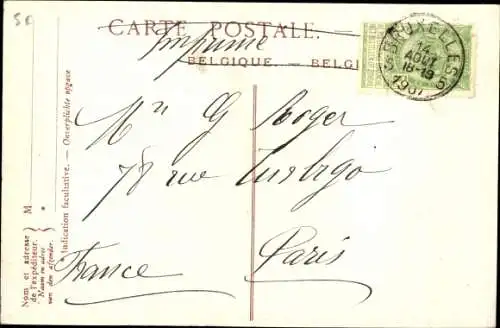 5e
CARTE POSTALE.
Imprimé
BELGIQUE. — BELGI
5 BRUXELLES 5
14
AOUT
18-19
1907
Mr G Roger
78 rue Turbigo
Paris
France
M
Nom et adresse
de l'expéditeur.
Naam en adres
van den afzender.
Indication facultative. — Onverplichte opgave